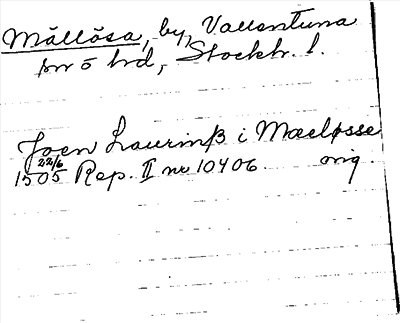 Mällösa, by, Vallentuna
sn o hd, Stockh. l.
Joen Laurinß i Mæløsse
22/6
1505 Rep. II nr 10406 orig.